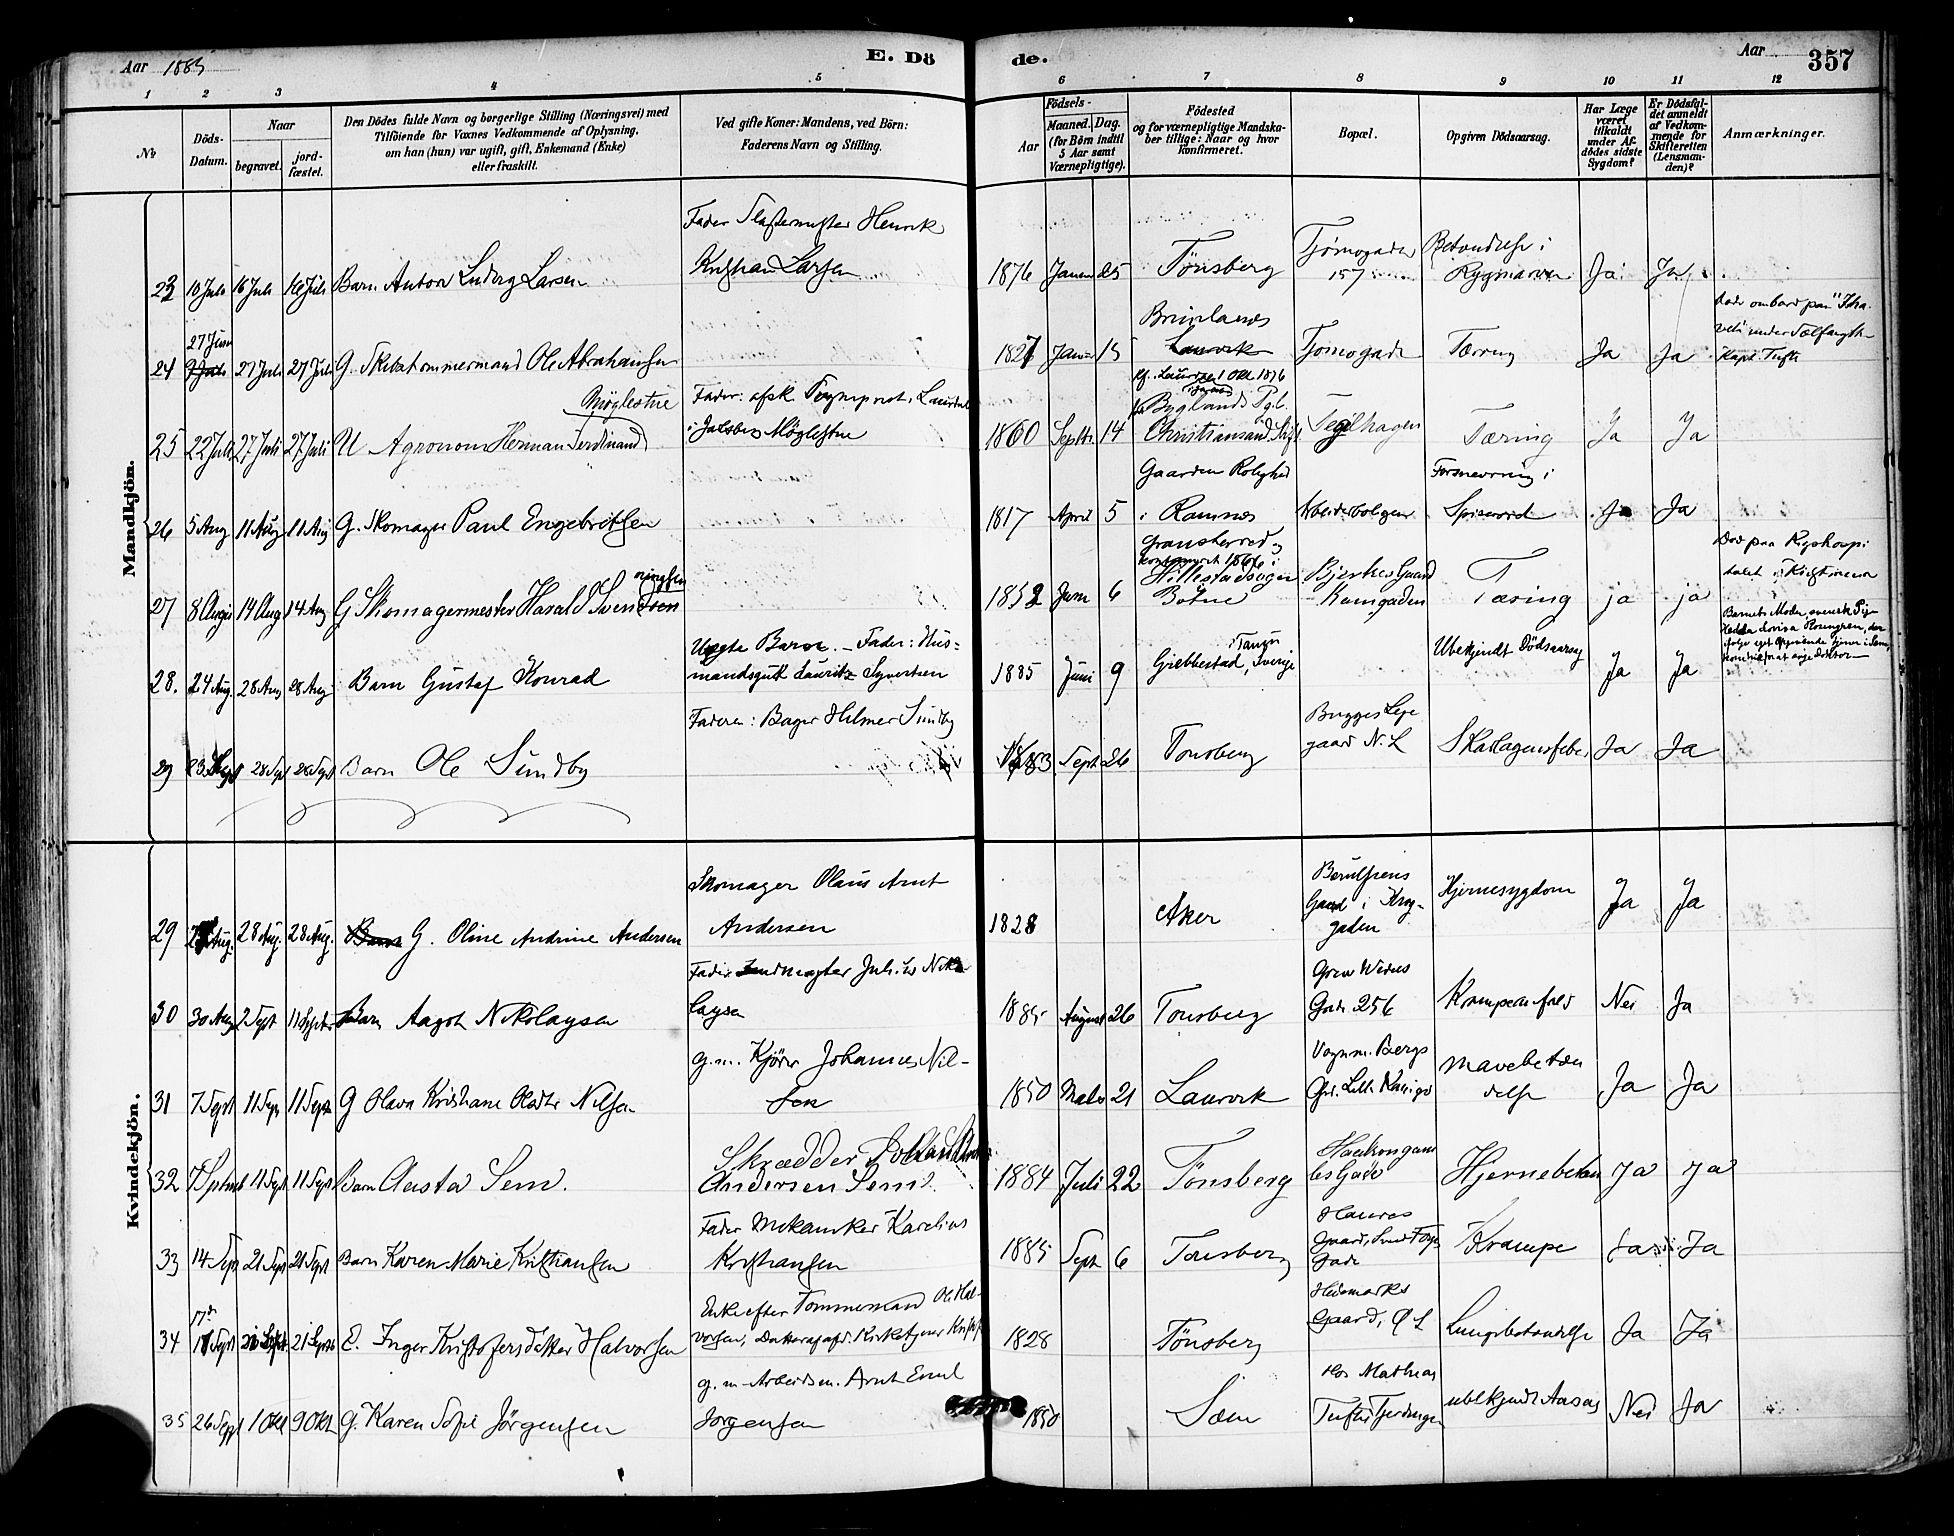 Aar 1885 E. Dö de. Aar 357
1 2 3 4 5 6 7 8 9 10 11 12
№
Döds-Datum.
Naar
begravet.
jord-fæstet.
Den Dödes fulde Navn og borgerlige Stilling (Næringsvei) med
Tilföiende for Voxnes Vedkommende af Oplysning,
om han (hun) var ugift, gift, Enkemand (Enke)
eller fraskilt.
Ved gifte Koner: Mandens, ved Börn:
Faderens Navn og Stilling.
Födsels-
Aar
Maaned. Dag.
(for Börn indtil
5 Aar samt
Værnepligtige).
Födested
og for værnepligtige Mandska-
ber tillige: Naar og hvor
konfirmeret.
Bopæl.
Opgiven Dödsaarsag.
Har Læge
været
tilkaldt
under Af-
dödes sidste
Sygdom?
Er Dödsfal-
det anmeldt
af Vedkom-
mende for
Skifteretten
(Lensman-
den)?
Anmærkninger.
Mandkjön.
23 10 Juli 16 Juli 16 Juli Barn Anton Ludvig Larsen
Fader Henrik
Kristian Larsen
1876 Januar 25 Tönsberg
Tjömogaden
157
Betændelse i
Rygmarven
Ja Ja
24 27 Juni 27 Juli 27 Juli G. Skibstømmermand Ole Abrahamsen
1827 Januar 15
Brunlanes
Laurvik
Tjömogade Tæring Ja Ja
død ombord paa
under Sælfangst
Kapt. Tufte
25 22 Juli 27 Juli 27 Juli U Agronom Herman Ferdinand
Møglestue
Fader: afsk. Sogneprest, Laurdal
Møglestue
1860 Septbr. 14
Kf. 1 Okt 1876
Byglands Pgl.
Christiansand Stift
Teglhagen Tæring Ja Ja
26 5 Aug 11 Aug 11 Aug G. Skomager Paul Engebretsen
1817 April 5
Gaarden Rolighed
i Ramnes
Arbeiderboligen
Forsnevring i
Spiserøret
Ja Ja
27 8 August 14 Aug 14 Aug G Skomagermester Harald Svendsen
1852 Juni 6
Hillestad sogn
Botne
Bjerkes Gaard
Kamgaden
Tæring ja ja
Død paa Rigshospi-
talet i Kristiania
28. 24 Aug. 28 Aug 28 Aug Barn Gustaf Konrad
Uægte Barn. – Fader: Hus-
mandsgut Lauritz Syvertsen
1885 Juni 9
i Tanum
Grebbestad, Sverige
Ubekjendt Dödsaarsag
Ja Ja
Barnets Moder svensk Pige
Hedda Lovisa Rosengren, der
29 23 Sept 28 Sept 28 Sept Barn Ole Sundby
Faderen: Bager Hilmer Sundby
1883 Sept. 26 Tonsberg
Bugges Leje
gaard N. L
Skarlagensfeber Ja Ja
Kvindekjön.
29 Aug. 28 Aug. 28 Aug. Barn G. Oline Andrine Andersen
Skomager Olaus Arnt
Andersen
1828 Aker
Berulfsens
Gaard i Krog-
gaden
Hjernesygdom Ja Ja
30 30 Aug 2 Sept 11 Septbr Barn Aagot Nikolaysen
Fader Julius Niko
laysen
1885 August 26 Tonsberg
Grev Wedels
Gade 256
Krampeanfald Nei Ja
31 7 Sept 11 Sept 11 Sept G Olava Kristiane Olsdtr Nilsen
g. m. Kjører Johannes Nil-
sen
1850 Marts 21 Laurvik
Vognm. Bergs
Mavebetæn
delse
Ja Ja
32 7 Septemb 11 Sept 11 Sept Barn Austa Sem.
Skrædder Johan
Andersen Sem.
1884 Juli 22 Tönsberg
Haakon gam
les Gade
Hjernebetæn Ja Ja
33 14 Sept 21 Sept 21 Sept Barn Karen Marie Kristiansen
Fader Mekaniker Karelius
Kristiansen
1885 Sept 6 Tonsberg
Gaard, Svend Foyns
Gade
Krampe Ja Ja
34 17 Sept 21 Sept 21 Septb E. Inger Kristofersdatter Halvorsen
Enke efter Tømmermand Ole Hal-
vorsen, Datter af afd. Kirketjener Kristof
1828 Tönsberg
Hedemarks
Gaard, Ø L
Lungebetændelse Ja Ja
35 26 Sept 1 Okt 9 Okt G. Karen Sofie Jörgensen
g. m. Arbeidsm. Arnt Emil
Jorgensen
1850 Sem
Hos Mathias
Tufte Fjerdingen
ubekjendt Aarsag Nei Ja